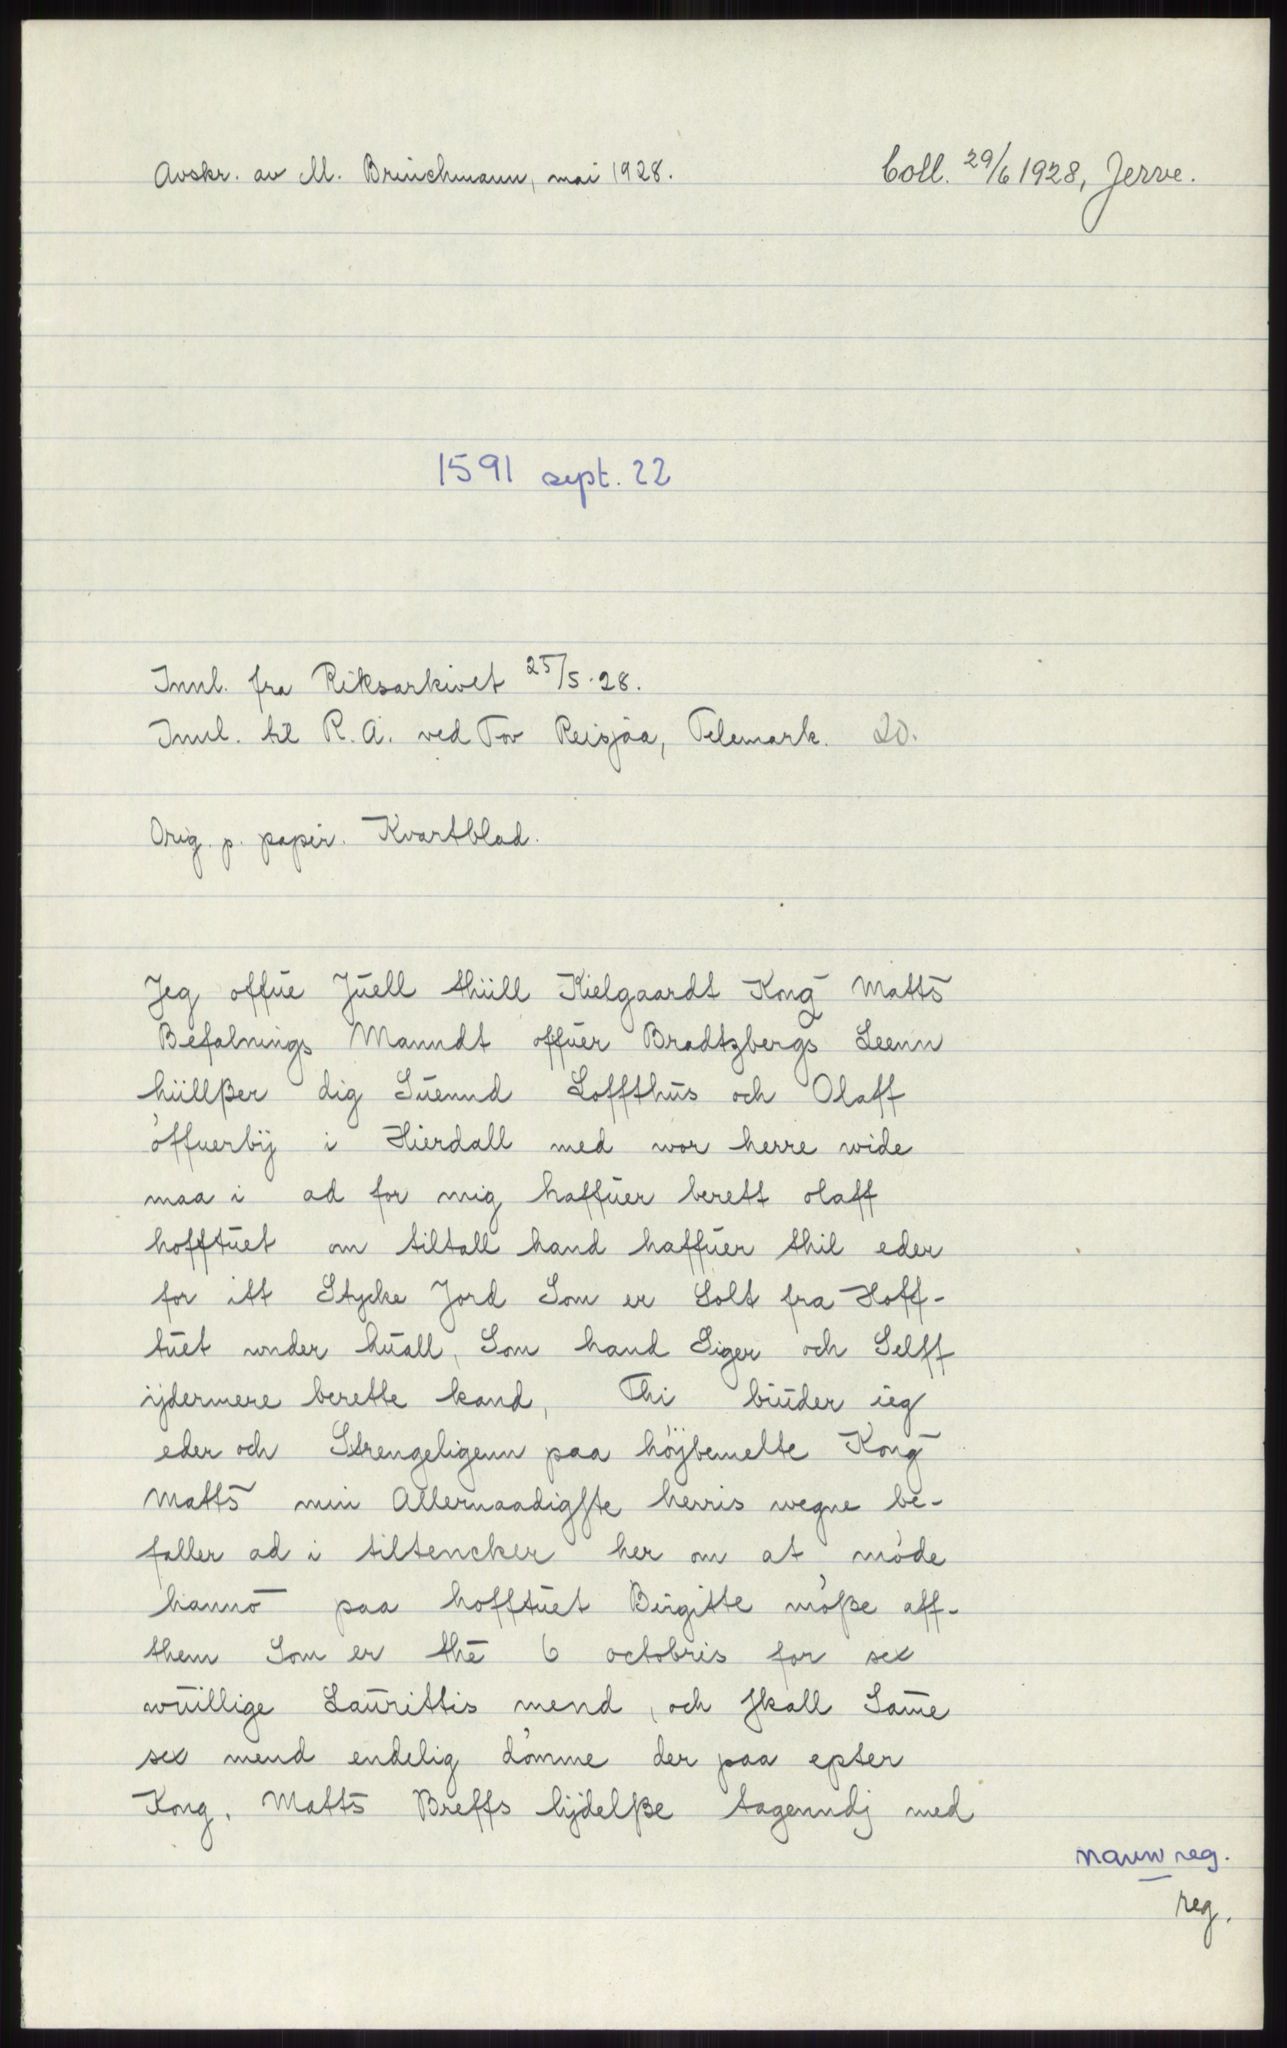 Avskr. av M. Brinchmann, mai 1928.
Coll. 29/6 1928, Jerve.
1591 sept. 22
Innl. fra Riksarkivet 25/5.28.
Innl. til R.A. ved Tov Reisjåa, Telemark. 20.
Orig. p. papir. Kvartblad.
Jeg offue Juell thiill Kielgaardt Kong Matts
Befalnings Manndt offuer Bradtzbergs Leenn
hiillßer dig Suennd Loffthus och Olaff
öffuerbÿ i Hierdall med wor herre wide
maa i ad for mig haffuer berett olaff
hofftuet om tiltall hand haffuer thil eder
for itt Stycke Jord Som er Solt fra Hoff-
tuet under huall, Som hand Siger och Selff
ijdermere berette kand, Thi biuder ieg
eder och Strengeligenn paa höjbemelte Kong
Matts min Allernaadigste herris wegne be-
faller ad i tiltencker her om at möde
hanno paa hofftuet Birgitte möße aff-
them Som er the 6 octobris for sex
wuillige Laurittis mend, och skall Same
sex mend endelig dömme der paa epter
Kong. Matts Breffs lijdelße tagenndj med
navnreg.
reg.